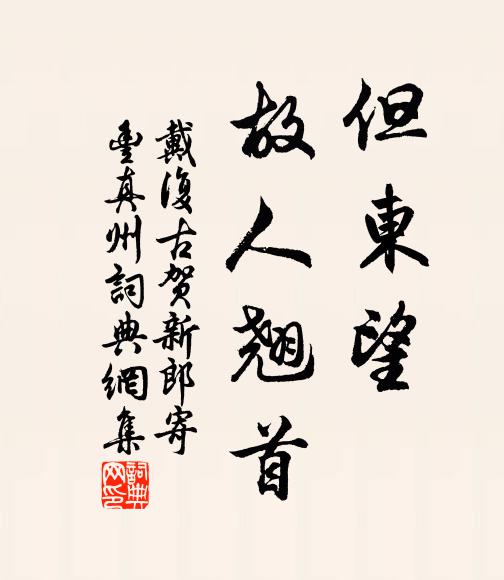 但東望
故人翹首
戴復古賀新郎寄
豐真州詞典網集
詞典网印